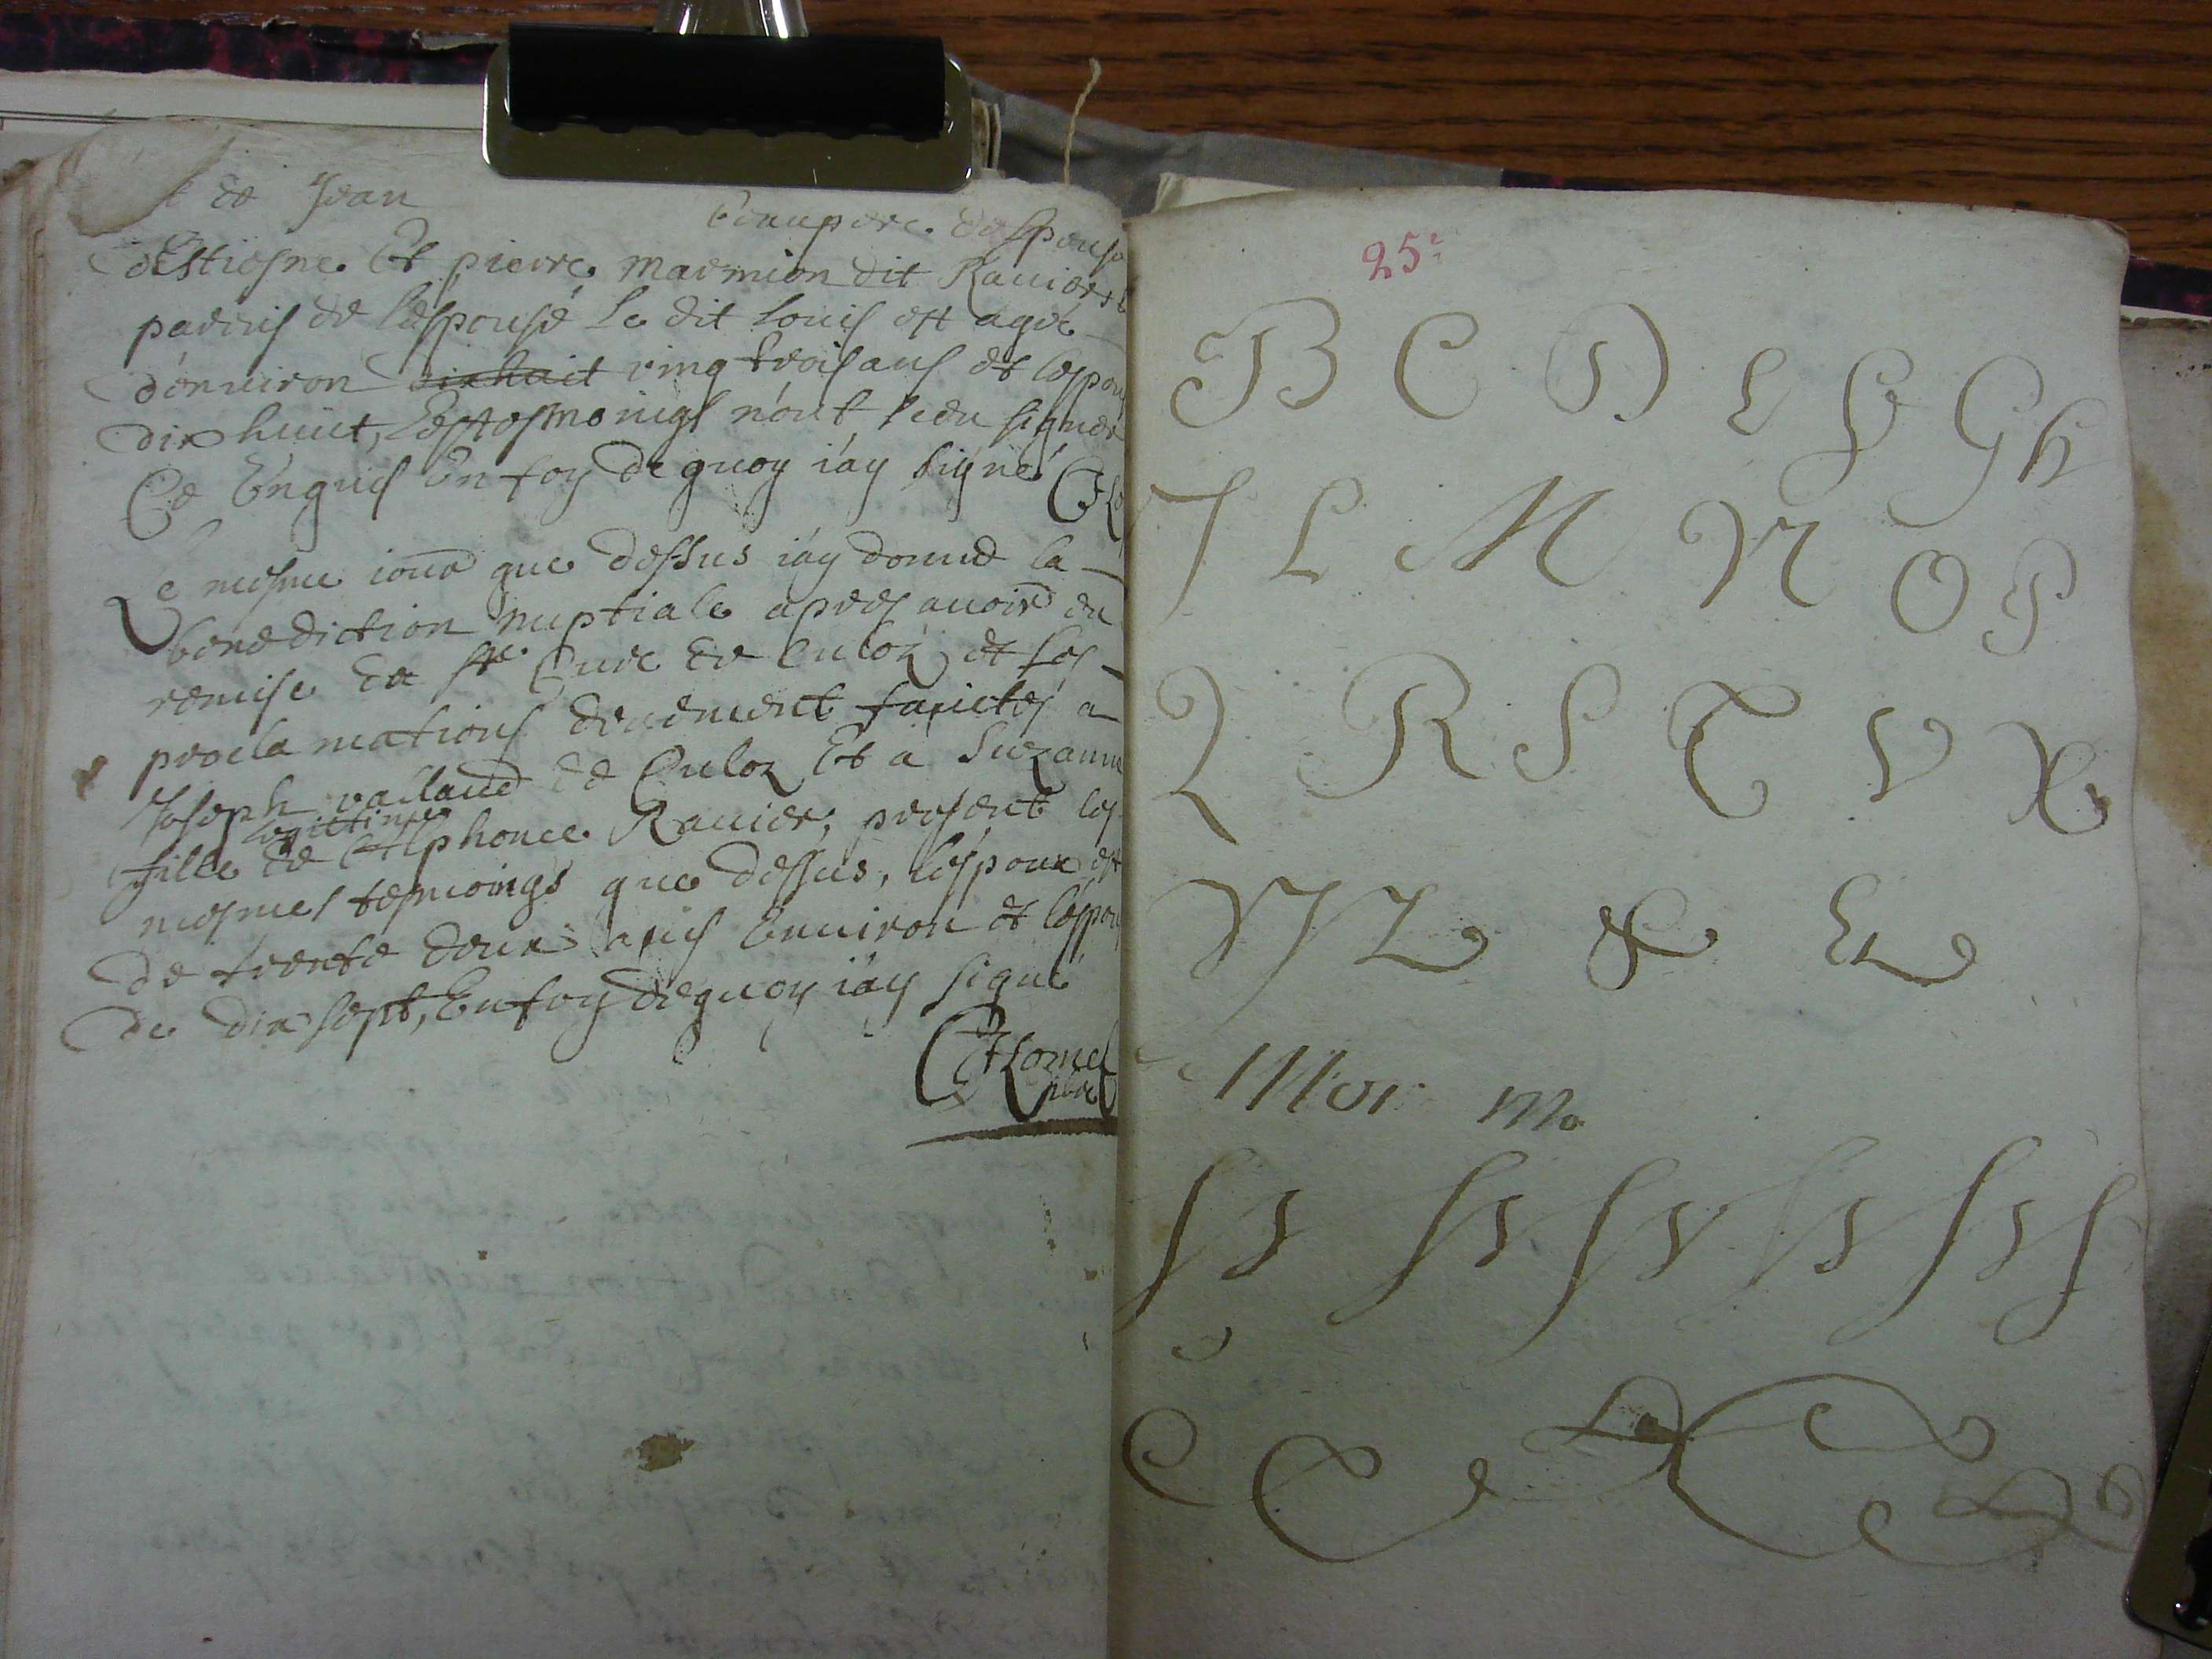 de Jean
beaupere despouse
d'Estiesne Et pierre marmion dit Rauier
parens de l'espousé Le dit Louis est agé
d'enuiron dixhuit ving trois ans et l'espou
dix huict, Les tesmoings n'ont sceu signer
Ce Enquis En foy de quoy i'ay signé
Le mesme iour que dessus i'ay donné la
benediction nuptiale apres auoir eu
remise du Sr. Curé de Culoz et les
proclamations deuement faictes a
Joseph vallaud de Culoz Et a Suzanne
legittime
fille de Alphonce Rauier, present les
mesmes tesmoings que dessus, l'espoux est
de trente deux ans Enuiron et l'espou
de dix sept, En foy de quoy i'ay signé
pbre
25
B C D E F G h
J L M N O P
Q R S T V X
Y Z & Et
Mor m